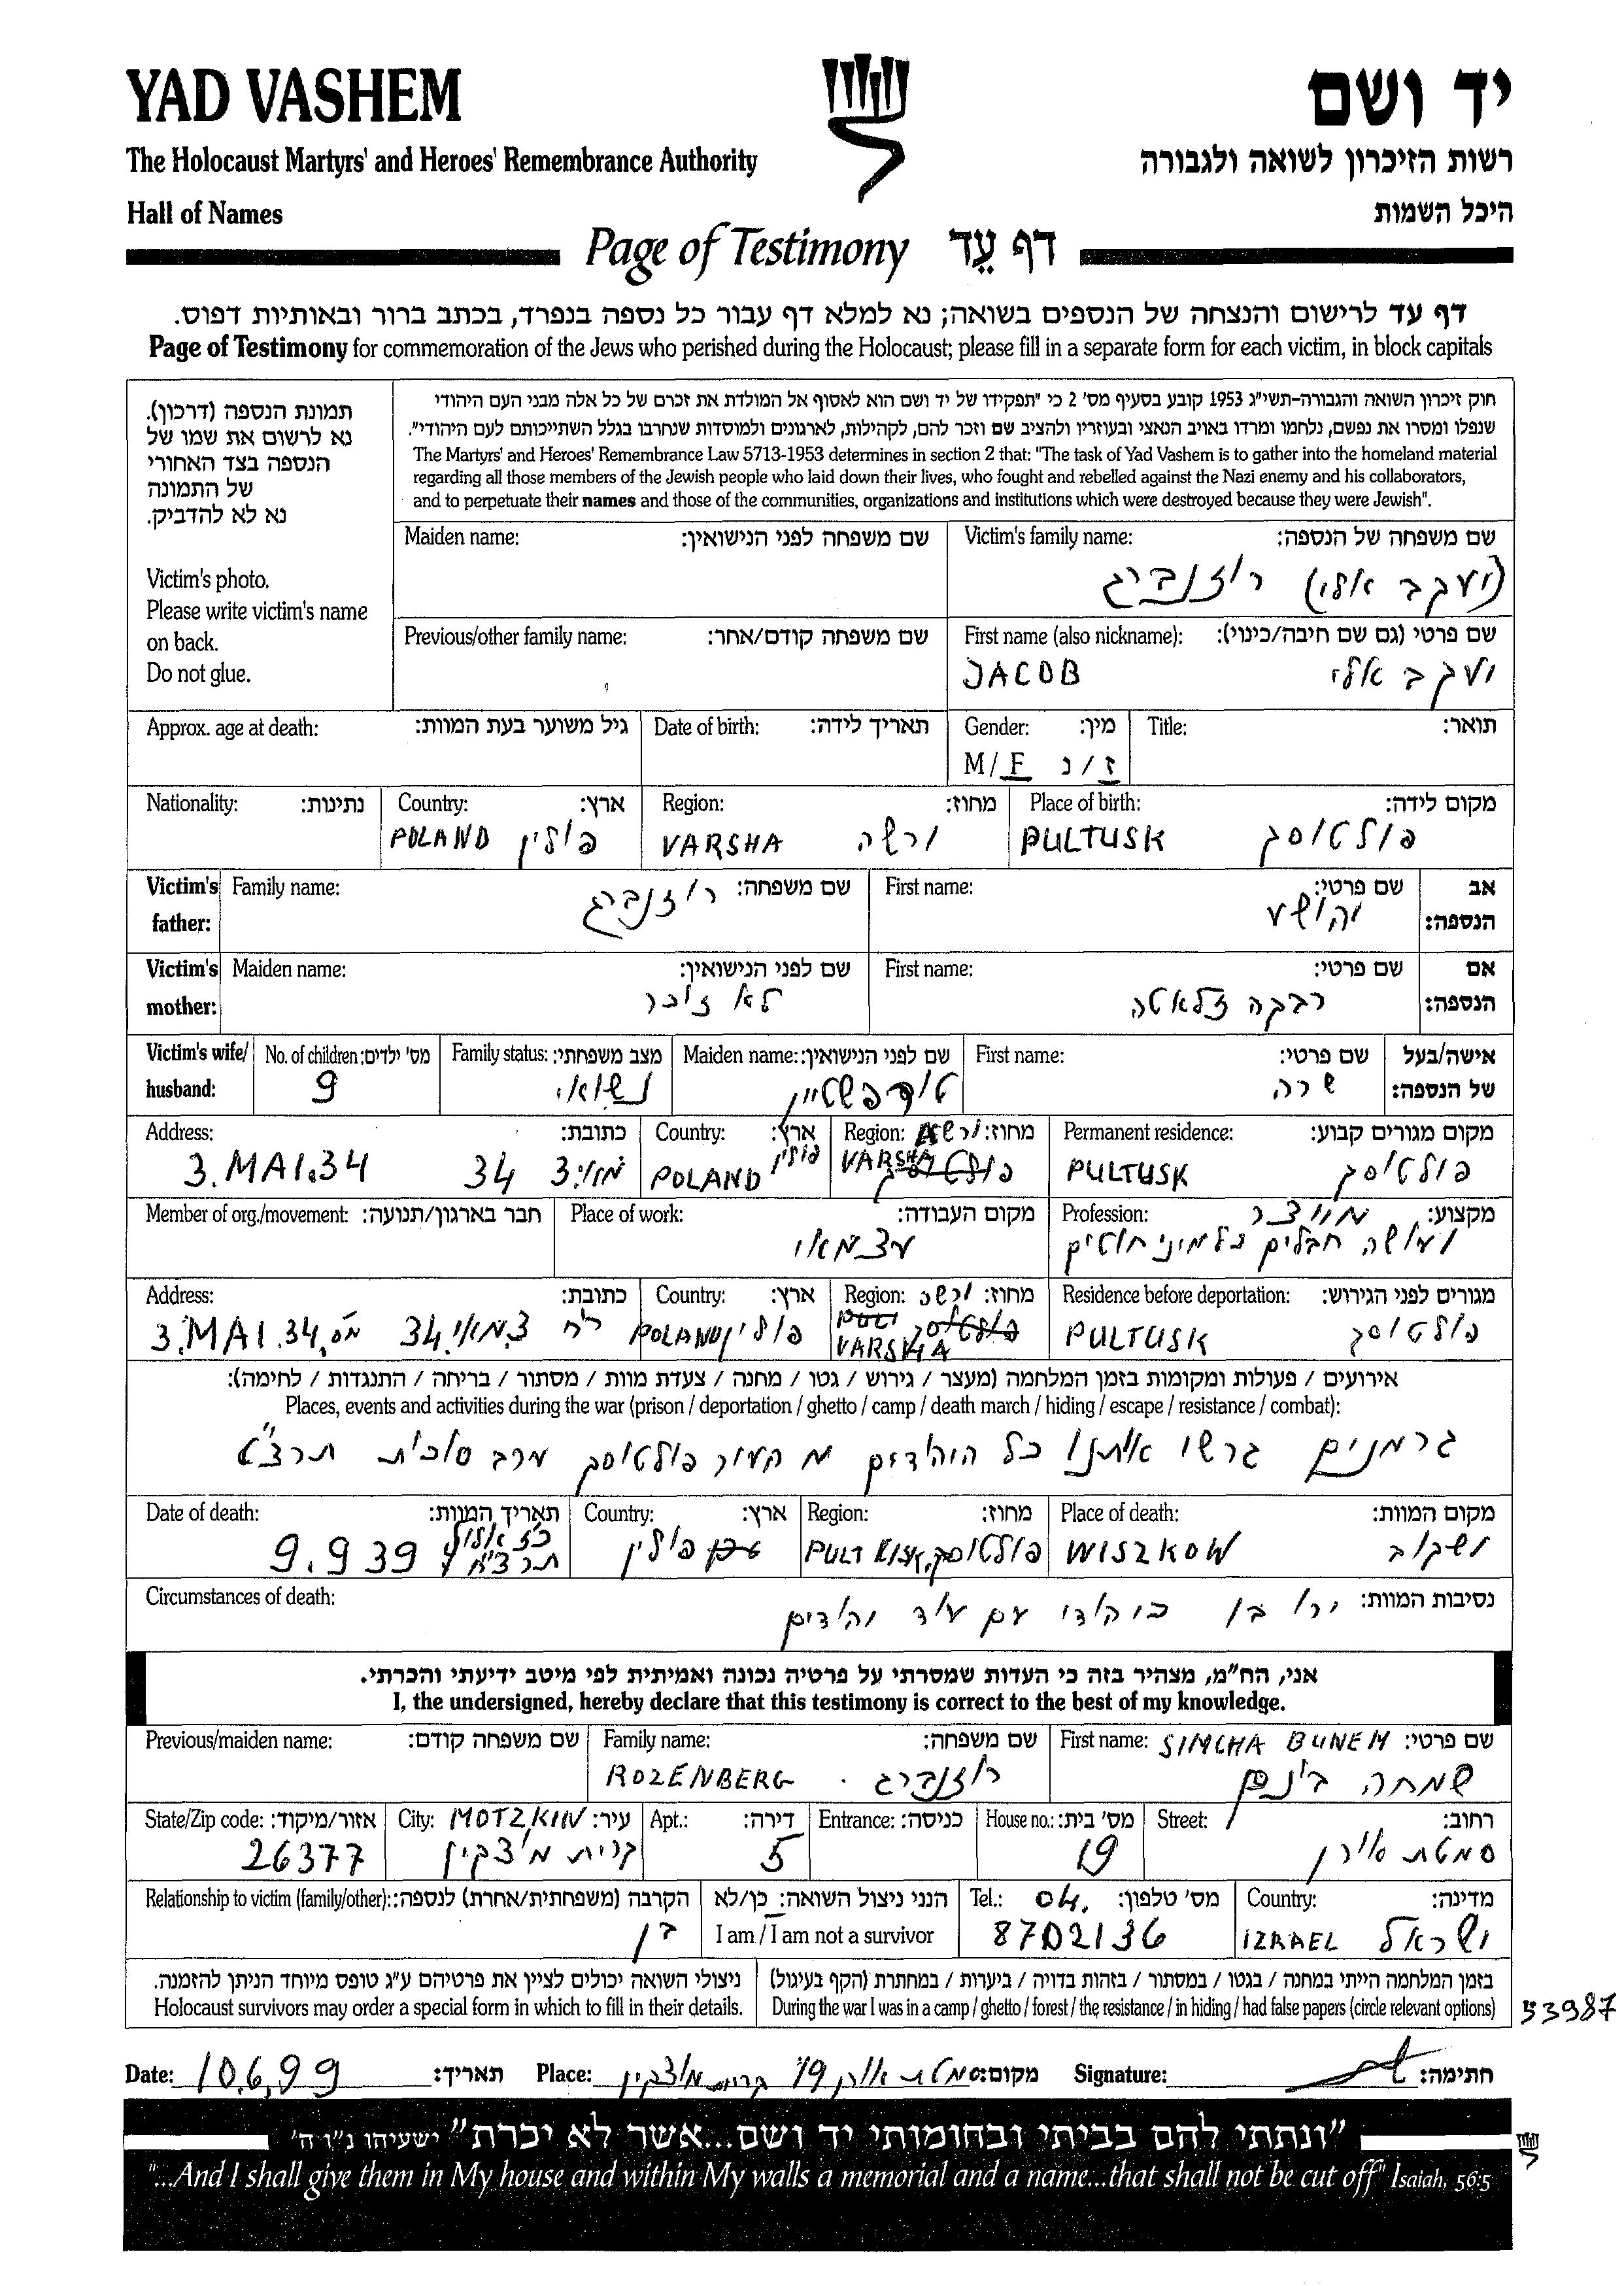 YAD VASHEM
יד ושם
The Holocaust Martyrs' and Heroes' Remembrance Authority
רשות הזיכרון לשואה ולגבורה
Hall of Names
היכל השמות
Page of Testimony דף עֵד
דף עד לרישום והנצחה של הנספים בשואה; נא למלא דף עבור כל נספה בנפרד, בכתב ברור ובאותיות דפוס.
Page of Testimony for commemoration of the Jews who perished during the Holocaust; please fill in a separate form for each victim, in block capitals
תמונת הנספה (דרכון).
נא לרשום את שמו של
הנספה בצד האחורי
של התמונה
נא לא להדביק.
Victim's photo.
Please write victim's name
on back.
Do not glue.
חוק זיכרון השואה והגבורה-תשי"ג 1953 קובע בסעיף מס' 2 כי "תפקידו של יד ושם הוא לאסוף אל המולדת את זכרם של כל אלה מבני העם היהודי
שנפלו ומסרו את נפשם, נלחמו ומרדו באויב הנאצי ובעוזריו ולהציב שם וזכר להם, לקהילות, לארגונים ולמוסדות שנחרבו בגלל השתייכותם לעם היהודי".
The Martyrs' and Heroes' Remembrance Law 5713-1953 determines in section 2 that: "The task of Yad Vashem is to gather into the homeland material
regarding all those members of the Jewish people who laid down their lives, who fought and rebelled against the Nazi enemy and his collaborators,
and to perpetuate their names and those of the communities, organizations and institutions which were destroyed because they were Jewish".
Maiden name: שם משפחה לפני הנישואין:
Victim's family name: שם משפחה של הנספה:
(יעקב אלי) רוזנברג
Previous/other family name: שם משפחה קודם/אחר:
First name (also nickname): שם פרטי (גם שם חיבה/כינוי):
JACOB יעקב אלי
Approx. age at death: גיל משוער בעת המוות:
Date of birth: תאריך לידה:
Gender: מין:
M/F ז/נ
Title: תואר:
Nationality: נתינות:
Country: ארץ:
POLAND פולין
Region: מחוז:
VARSHA ורשה
Place of birth: מקום לידה:
PULTUSK פולטוסק
Victim's father:
Family name: שם משפחה: רוזנברג
First name: שם פרטי:
יהושע
אב הנספה:
Victim's mother:
Maiden name: שם לפני הנישואין:
לא זוכר
First name: שם פרטי:
רבקה זלאטה
אם הנספה:
Victim's wife/ husband:
No. of children: מס' ילדים:
9
Family status: מצב משפחתי:
נשואי
Maiden name: שם לפני הנישואין:
First name: שם פרטי:
שרה
אישה/בעל של הנספה:
Address: כתובת:
3.MAI.34 34
Country: ארץ:
POLAND פולין
Region: מחוז: ורשה
VARSHA
Permanent residence: מקום מגורים קבוע:
PULTUSK פולטוסק
Member of org./movement: חבר בארגון/תנועה:
Place of work: מקום העבודה:
עצמאי
Profession: מקצוע:
ועושה חבלים כל מיני חוטים
Address: כתובת:
3.MAI.34 רח 3.מאי.34
Country: ארץ:
POLAND פולין
Region: מחוז: ורשה
VARSHA
Residence before deportation: מגורים לפני הגירוש:
PULTUSK פולטוסק
אירועים / פעולות ומקומות בזמן המלחמה (מעצר / גירוש / גטו / מחנה / צעדת מוות / מסתור / בריחה / התנגדות / לחימה):
Places, events and activities during the war (prison / deportation / ghetto / camp / death march / hiding / escape / resistance / combat):
גרמנים גרשו אותנו כל היהודים מ העיר פולטוסק ערב סוכות תרצ"ט
Date of death: תאריך המוות:
9.9 39 כ"ז אלול
Country: ארץ:
פולין
Region: מחוז:
PULTUSK פולטוסק
Place of death: מקום המוות:
WISZKOW ושקוב
Circumstances of death: נסיבות המוות:
ירו בו כיהודי עם עוד יהודים
אני, הח"מ, מצהיר בזה כי העדות שמסרתי על פרטיה נכונה ואמיתית לפי מיטב ידיעתי והכרתי.
I, the undersigned, hereby declare that this testimony is correct to the best of my knowledge.
Previous/maiden name: שם משפחה קודם:
Family name: שם משפחה:
ROZENBERG רוזנברג
First name: SIMCHA BUNEM שם פרטי:
שמחה בינם
State/Zip code: אזור/מיקוד:
26377
City: MOTZKIN עיר:
קרית מוצקין
Apt.: דירה:
5
Entrance: כניסה:
House no.: מס' בית:
19
Street: רחוב:
סמטת אורן
Relationship to victim (family/other): הקרבה (משפחתית/אחרת) לנספה:
בן
הנני ניצול השואה: כן/לא
I am / I am not a survivor
Tel.: 04. מס' טלפון:
8702136
Country: מדינה:
IZRAEL ישראל
ניצולי השואה יכולים לציין את פרטיהם ע"ג טופס מיוחד הניתן להזמנה.
Holocaust survivors may order a special form in which to fill in their details.
בזמן המלחמה הייתי במחנה / בגטו / במסתור / בזהות בדויה / ביערות / במחתרת (הקף בעיגול)
During the war I was in a camp / ghetto / forest / the resistance / in hiding / had false papers (circle relevant options)
53987
Date: 10.6.99 תאריך:
Place: סמטת אורן 19 קרית מוצקין מקום:
Signature: חתימה:
"ונתתי להם בביתי ובחומותי יד ושם...אשר לא יכרת" ישעיהו נ"ו ה'
"...And I shall give them in My house and within My walls a memorial and a name...that shall not be cut off" Isaiah, 56:5